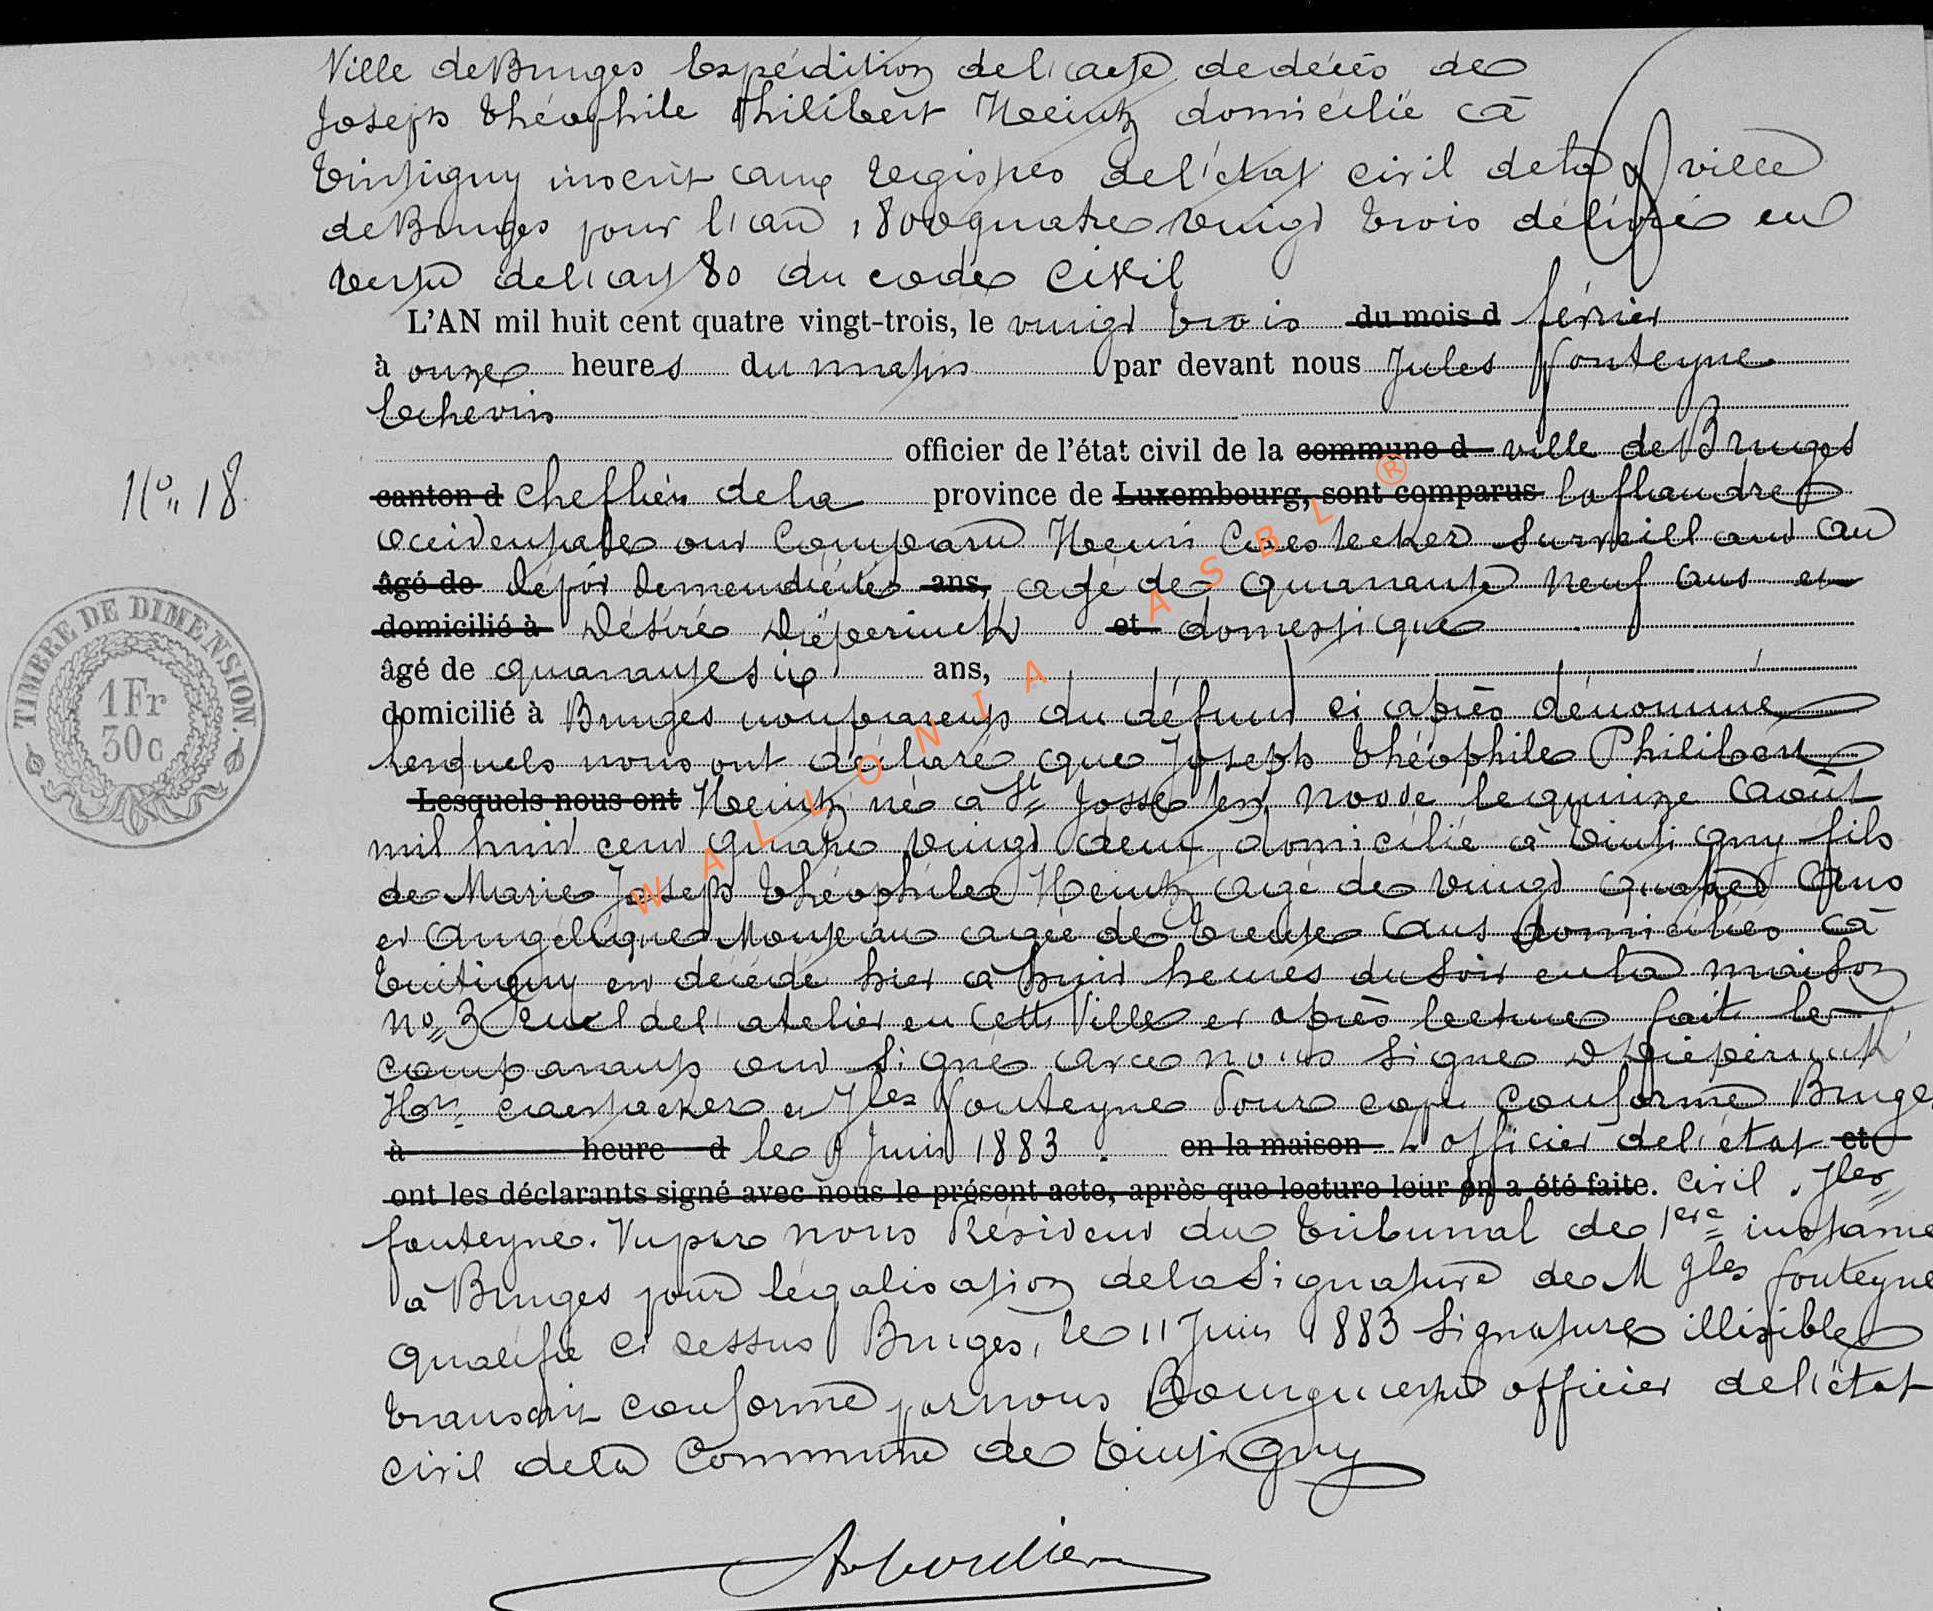 Ville de Bruges Expédition de l'acte de décès de
Joseph Théophile Philibert Heintz domicilié à
Tintigny inscrit aux registres de l'état civil de la ville
de Bruges pour l'an 1800 quatre vingt trois délivré en
vertu de l'art 80 du code civil
L'AN mil huit cent quatre vingt-trois, le vingt trois du mois d février
à onze heures du matin par devant nous Jules Fonteyne
Echevin
officier de l'état civil de la commune d ville de Bruges
N° 18
canton d chef lieu de la province de Luxembourg, sont comparus la flandre
occidentale ont comparu Henri surveillant au
âgé de dépôt de mendicité ans, agé de quarante neuf ans et
domicilié à Désiré Dieperinck et domestique
âgé de quarante six ans,
domicilié à Bruges non parents du défunt ci après dénommé
lesquels nous ont déclaré que Joseph Théophile Philibert
Lesquels nous ont Heintz né à St Josse ten Noode le quinze Août
mil huit cent quatre vingt deux, domicilié à Tintigny fils
de Marie Joseph Théophile Heintz agé de vingt quatre Ans
et Angélique agée de trente Ans domiciliés à
Tintigny est décédé hier à huit heures du soir en la maison
n° 3 rue de l'atelier en cette Ville et après lecture faite les
comparants ont signé avec nous signé D Dieperinck
Hri et Jles Fonteyne Pour copie conforme Bruges
à heure d le 9 Juin 1883. en la maison L'officier de l'état et
ont les déclarants signé avec nous le présent acte, après que lecture leur en a été faite. civil. Jles
fonteyne. Vu par nous Président du tribunal de 1ere instance
à Bruges pour légalisation de la signature de M Jles fonteyne
qualifié ci dessus Bruges, le 11 Juin 1883 signature illisible
transcrit conforme par nous Bourgmestre officier de l'état
civil de la Commune de Tintigny
TIMBRE DE DIMENSION.
1 Fr
30 c
WALLONIA ASBL ®